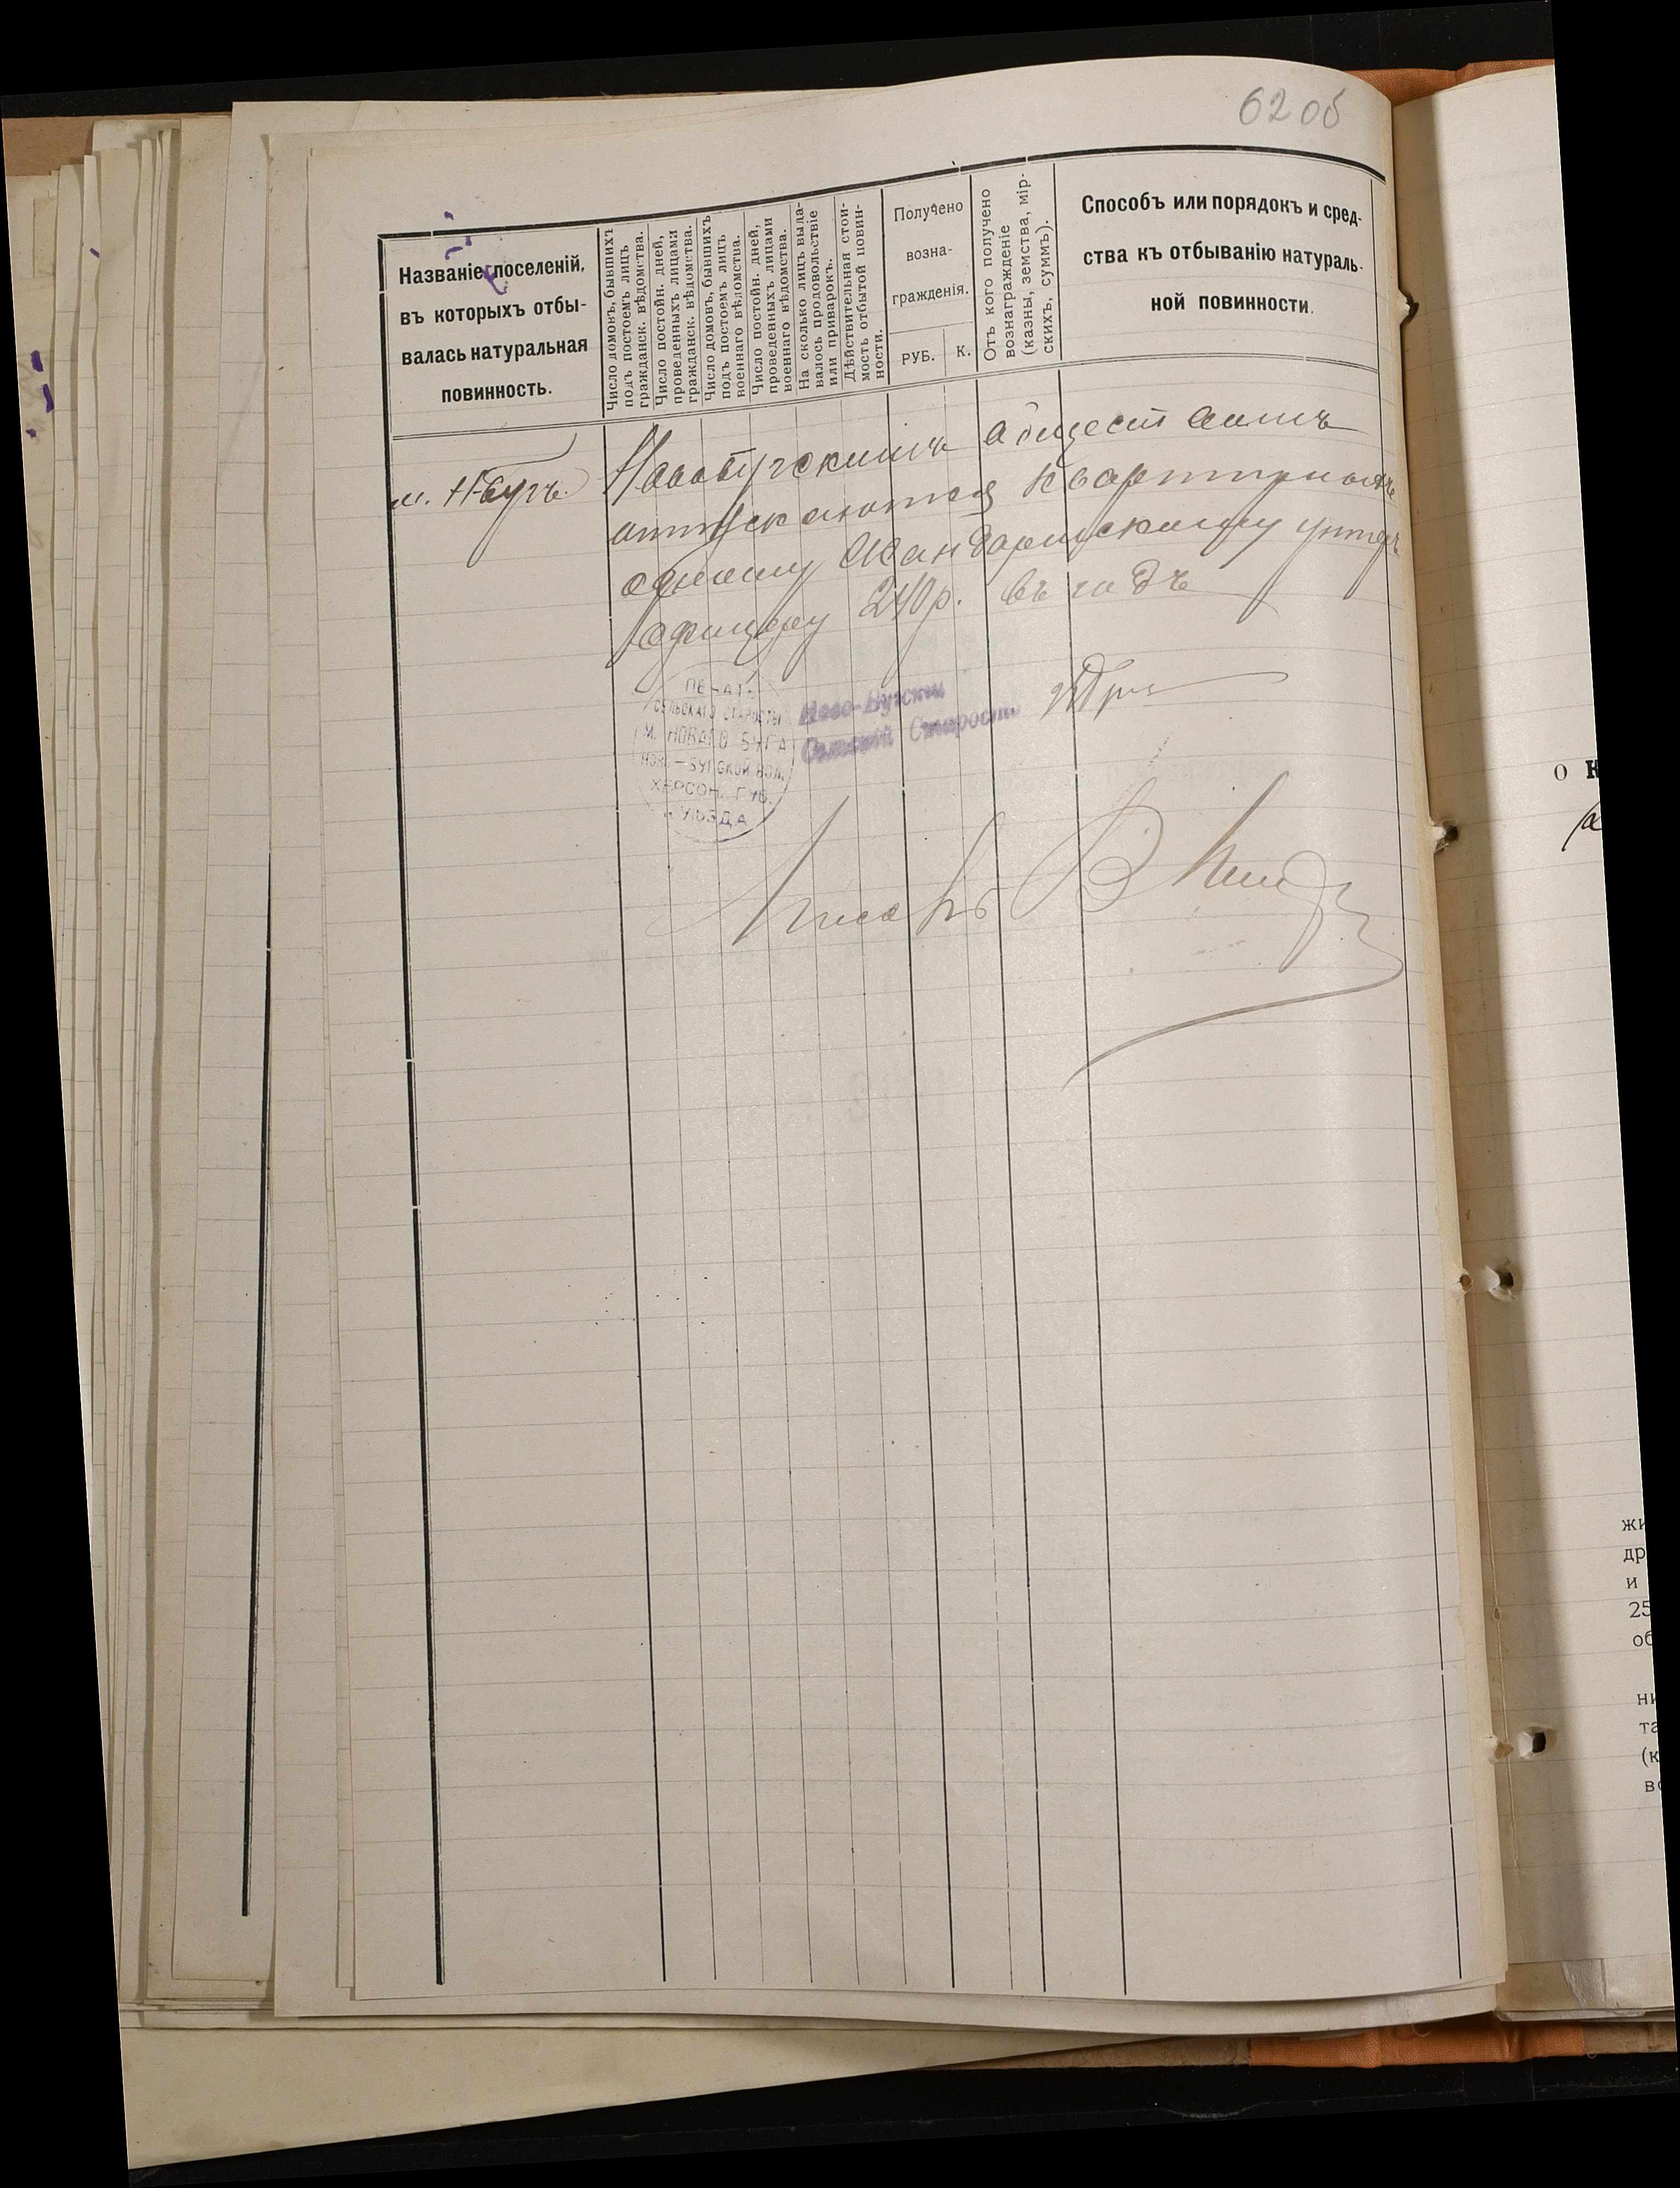 62 об
Названіе поселеній,
въ которыхъ отбы-
валась натуральная
повинность.
Число домовъ, бывшихъ
подъ постоемъ лицъ
гражданск. вѣдомства.
Число постойн. дней,
проведенныхъ лицами
гражданск. вѣдомства.
Число домовъ, бывшихъ
подъ постоемъ лицъ
военнаго вѣдомства.
Число постойн. дней,
проведенныхъ лицами
военнаго вѣдомства.
На сколько лицъ выда-
валось продовольствіе
или приварокъ.
Дѣйствительная стои-
мость отбытой повин-
ности.
Получено
возна-
гражденія.
РУБ.
К.
Отъ кого получено
вознагражденіе
(казны, земства, мір-
скихъ, суммъ).
Способъ или порядокъ и сред-
ства къ отбыванію натураль-
ной повинности.
м. Н-Бугъ. Новобугскимъ обществомъ
отпускаются квартирныхъ
одному Жандармскому унтеръ
офицеру 240 р. въ годъ
ПЕЧАТЬ
СЕЛЬСКАГО СТАРОСТЫ
М. НОВАГО БУГА
НОВО-БУГСКОЙ ВОЛ.
ХЕРСОН. ГУБ.
УѢЗДА
Ново-Бугский
Сельский Староста
Писарь В
о К
жи
др
и
25
об
ни
та
(к
во